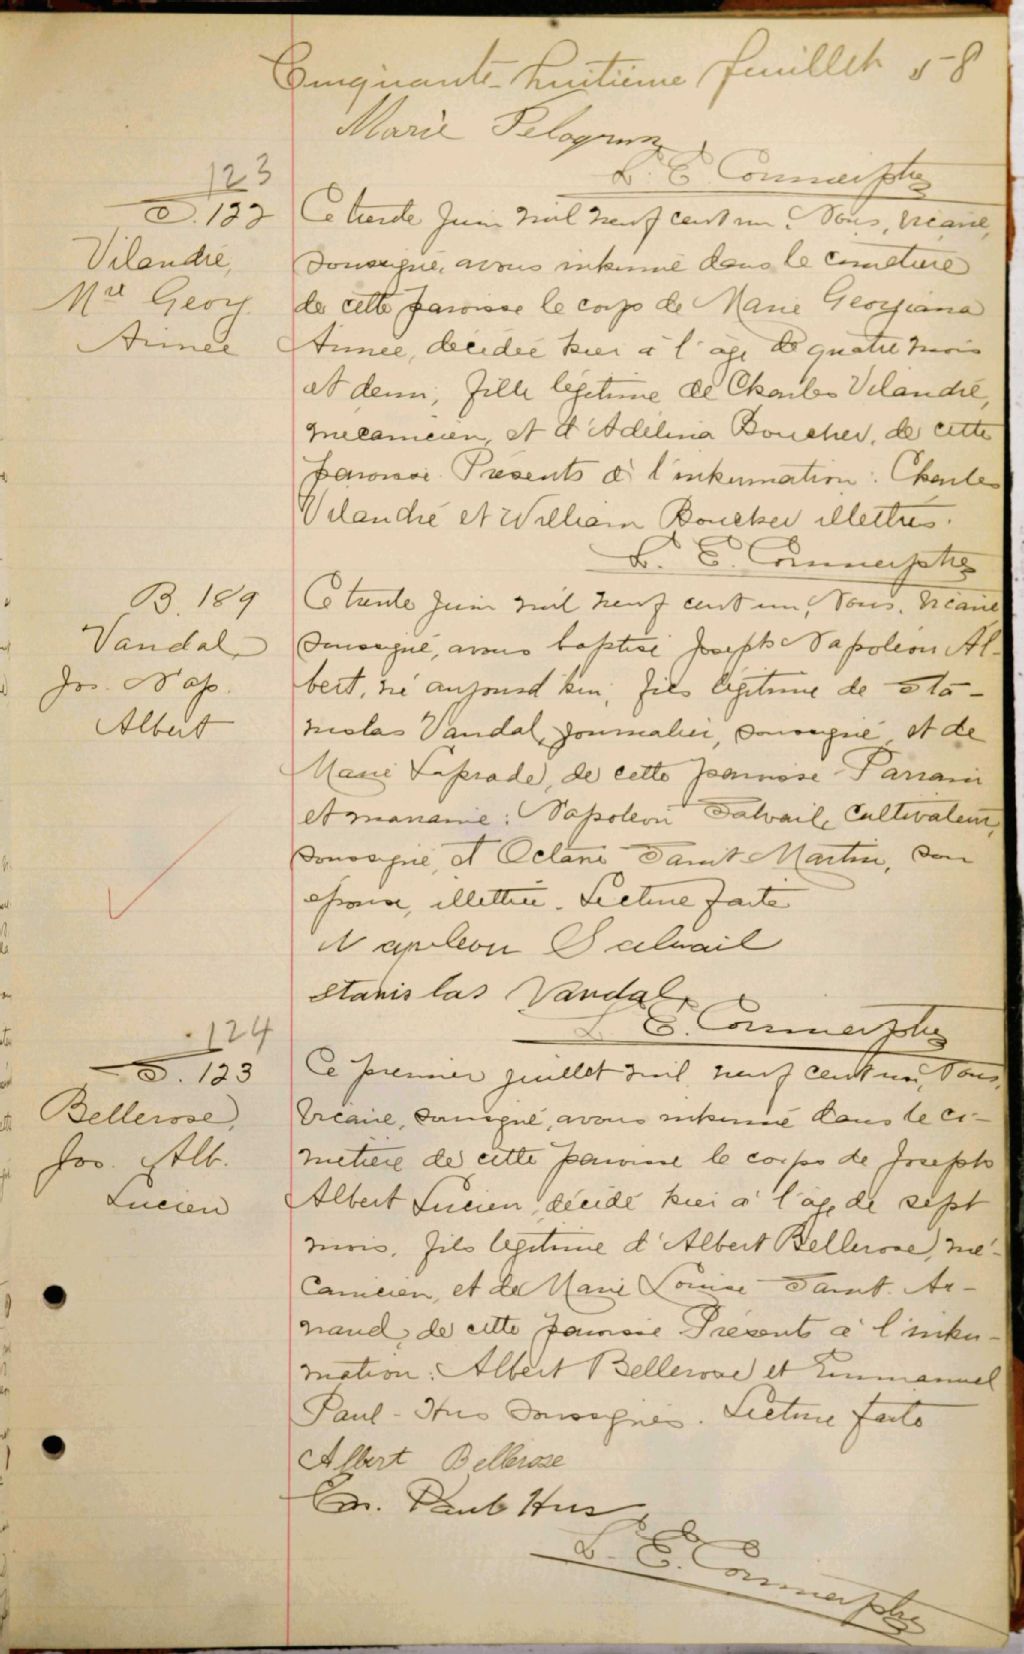 Cinquante-huitième feuillet 58
Marie Pelogrun
L. E. Cournoyer ptre
123
S. 122
Vilandré,
Mie Georg.
Aimée
Ce trente Juin mil neuf cent un, Nous, vicaire,
soussigné, avons inhumé dans le cimetière
de cette paroisse le corps de Marie Georgiana
Aimée, décédée hier à l'âge de quatre mois
et demi, fille légitime de Charles Vilandré,
mécanicien, et d'Adélina Boucher, de cette
paroisse. Présents à l'inhumation: Charles
Vilandré et William Boucher illettrés.
L. E. Cournoyer ptre
B. 189
Vandal,
Jos. Nap.
Albert
Ce trente Juin mil neuf cent un, Nous, vicaire
soussigné, avons baptisé Joseph Napoléon Al-
bert, né aujourd'hui, fils légitime de Sta-
nislas Vandal, journalier, soussigné, et de
Marie Laprade, de cette paroisse. Parrain
et marraine: Napoléon Salvail, cultivateur,
soussigné, et Octavie Saint Martin, son
épouse, illettrée. Lecture faite
Napoleon Salvail
Stanislas Vandal
L. E. Cournoyer ptre
124
S. 123
Bellerose,
Jos. Alb.
Lucien
Ce premier juillet mil neuf cent un, Nous,
vicaire, soussigné, avons inhumé dans le ci-
metière de cette paroisse le corps de Joseph
Albert Lucien, décédé hier à l'âge de sept
mois, fils légitime d'Albert Bellerose, mé-
canicien, et de Marie Louise Saint. Ar-
naud, de cette paroisse Présents à l'inhu-
mation: Albert Bellerose et Emmanuel
Paul-Hus soussignés. Lecture faite
Albert Bellerose
Em. Paul Hus
L. E. Cournoyer ptre